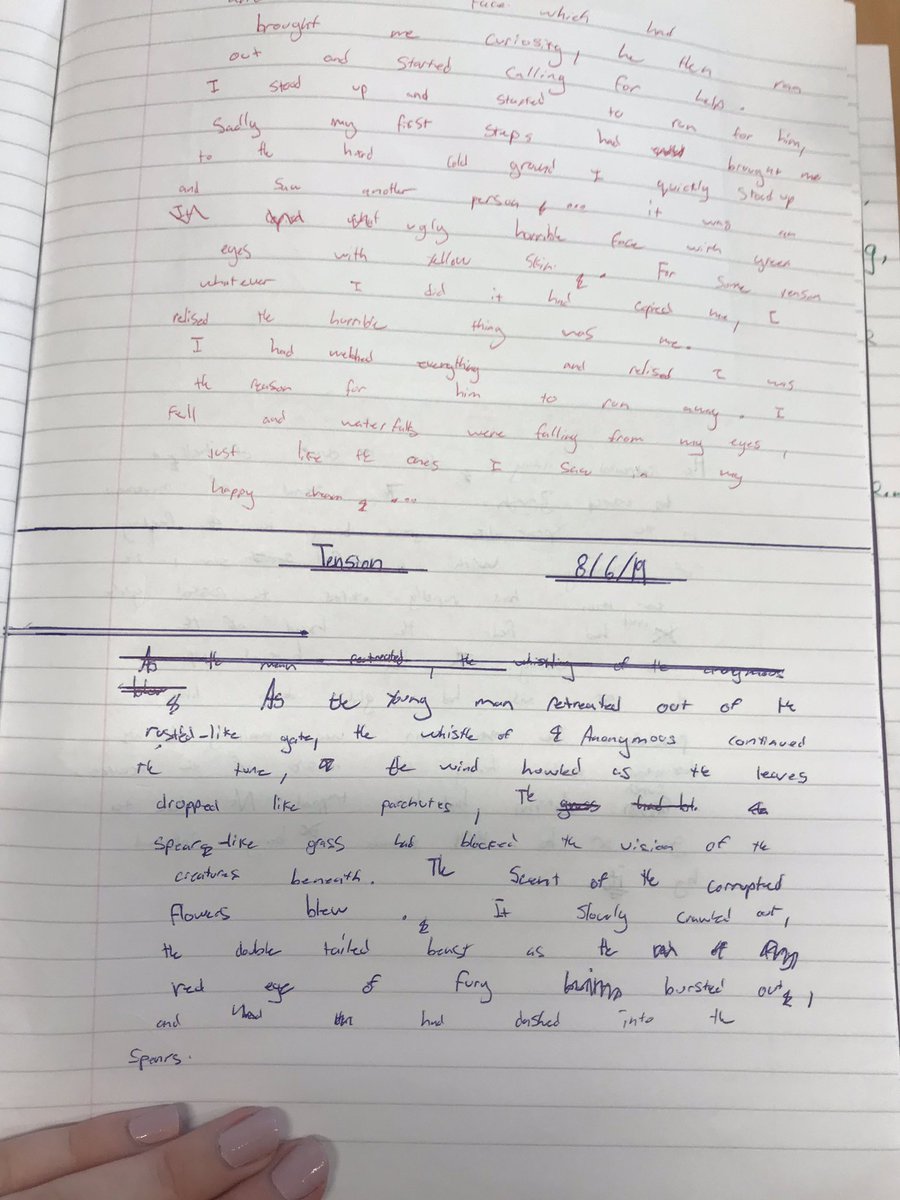 face which had
brought me curiosity, he then ran
out and started calling for help.
I stood up and started to run for him,
Sadly my first steps had brought me
to the hard cold ground I quickly stood up
and saw another person ... it was an
ugly horrible face with green
eyes with yellow skin. For some reason
whatever I did it had copied me, I
relised the horrible thing was me.
I had webbed everything and relised I was
the reason for him to run away. I
fell and waterfalls were falling from my eyes,
just like the ones I saw in my
happy dream ...
Tension 8/6/19
As the man retreated, the whistling of the anonymous
blew
As the young man retreated out of the
rusted-like gate, the whistle of Anonymous continued
the tune, the wind howled as the leaves
dropped like parchutes, The grass had bl.
spear-like grass had blocked the vision of the
creatures beneath. The Scent of the corrupted
flowers blew. It slowly crawled out,
the double tailed beast as the
red eye of fury bursted out,
and had dashed into the
Spears.